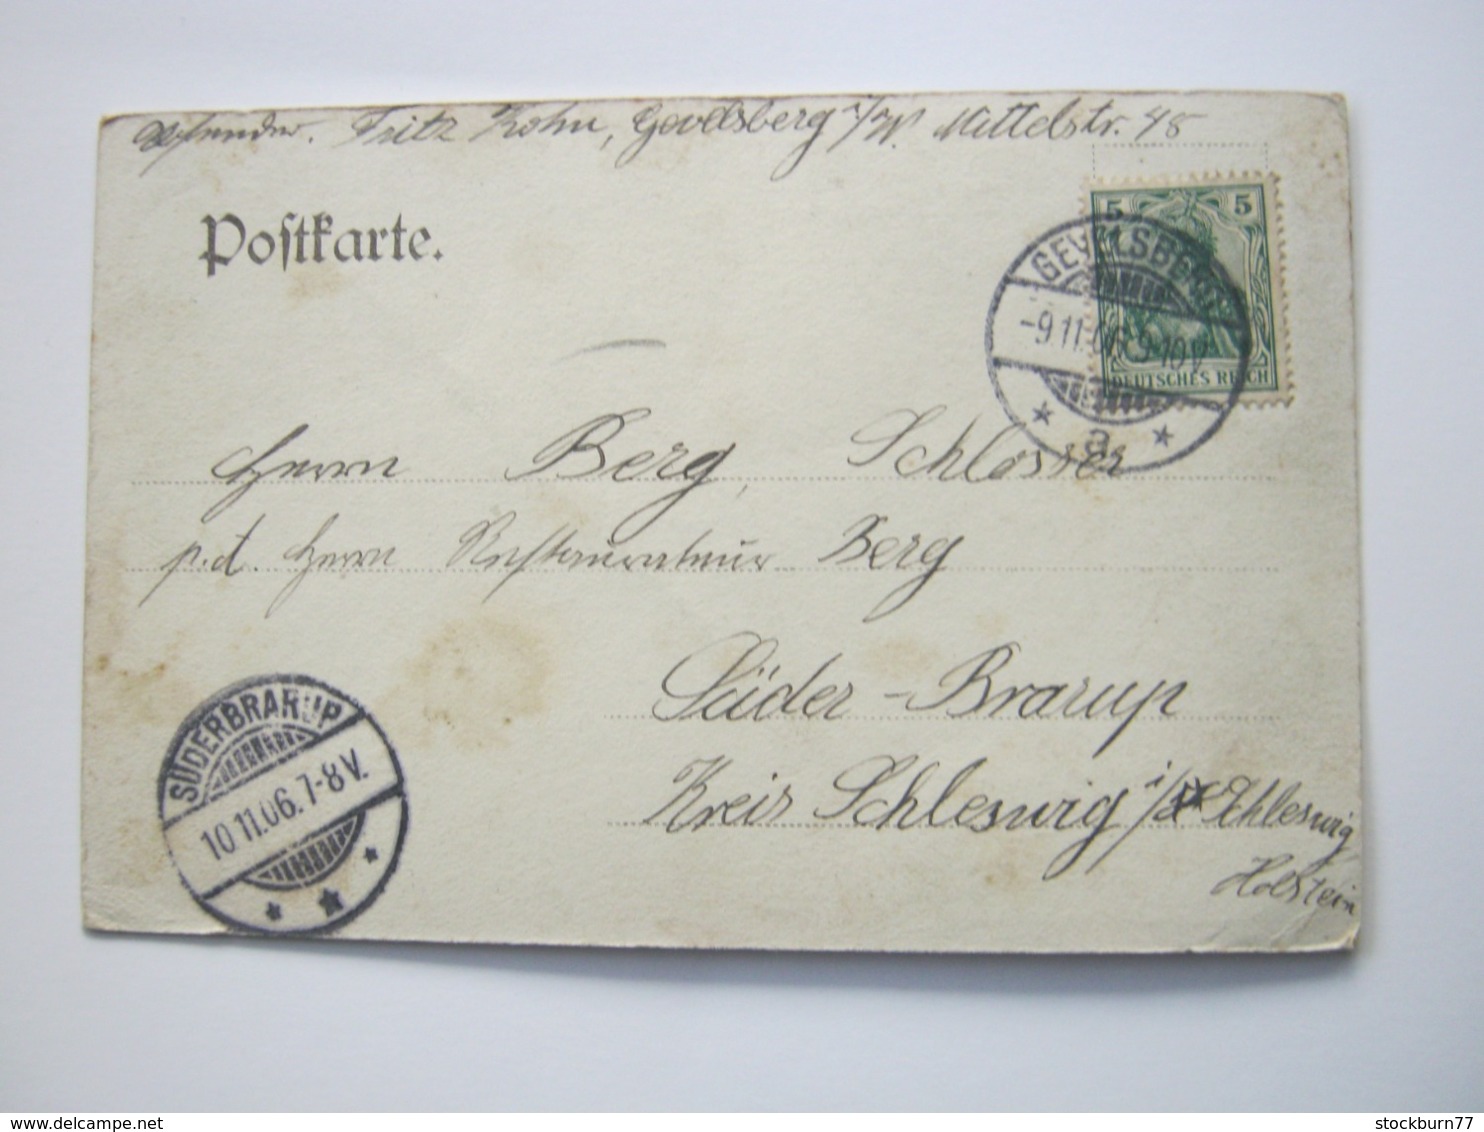 Absender. Fritz Kohn, Gevelsberg i/W. Mittelstr. 48
Postkarte.
5 5
DEUTSCHES REICH
GEVELSBERG
-9.11.06. 9-10V.
a
Herrn Berg, Schlosser
p. d. Herrn Restaurateur Berg
Süder-Brarup
Kreis Schleswig i/ Schleswig
Holstein
SÜDERBRARUP
10.11.06. 7-8V.
stockburn77